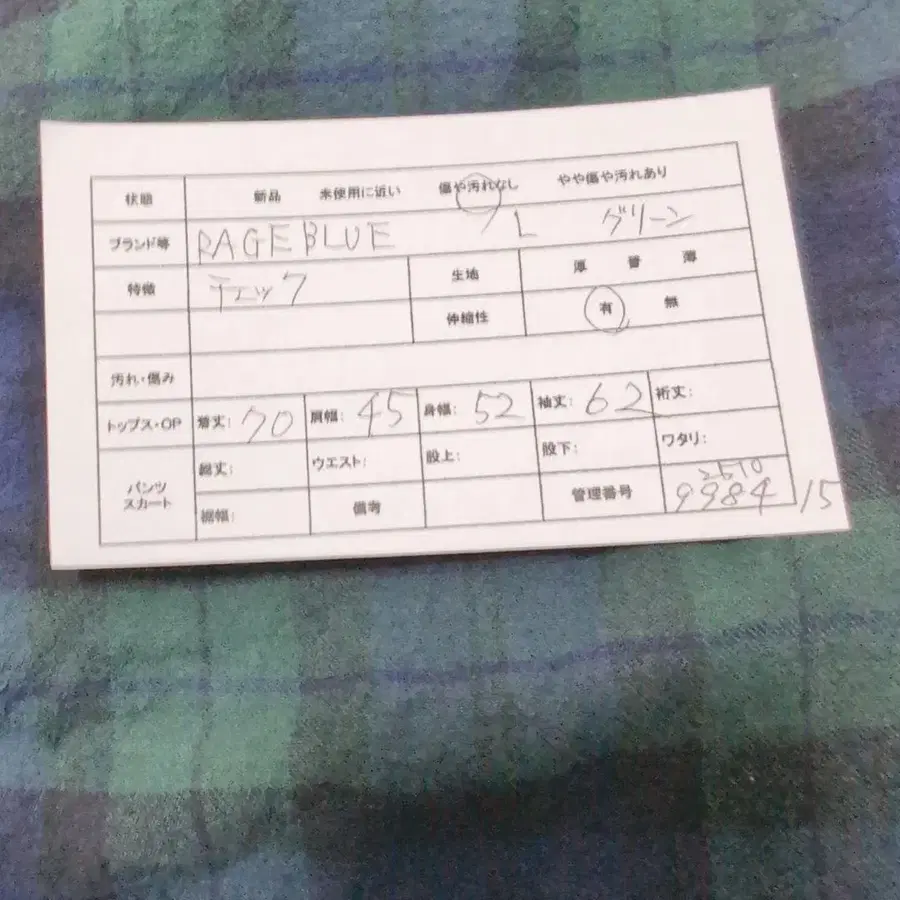 状態 新品 未使用に近い 傷や汚れなし やや傷や汚れあり
ブランド等 RAGEBLUE L グリーン
特徴 チェック 生地 厚 普 薄
伸縮性 有 無
汚れ・傷み
トップス・OP 着丈: 70 肩幅: 45 身幅: 52 袖丈: 62 裄丈:
パンツ スカート 総丈: ウエスト: 股上: 股下: ワタリ:
裾幅: 備考 管理番号 2510
9984 15